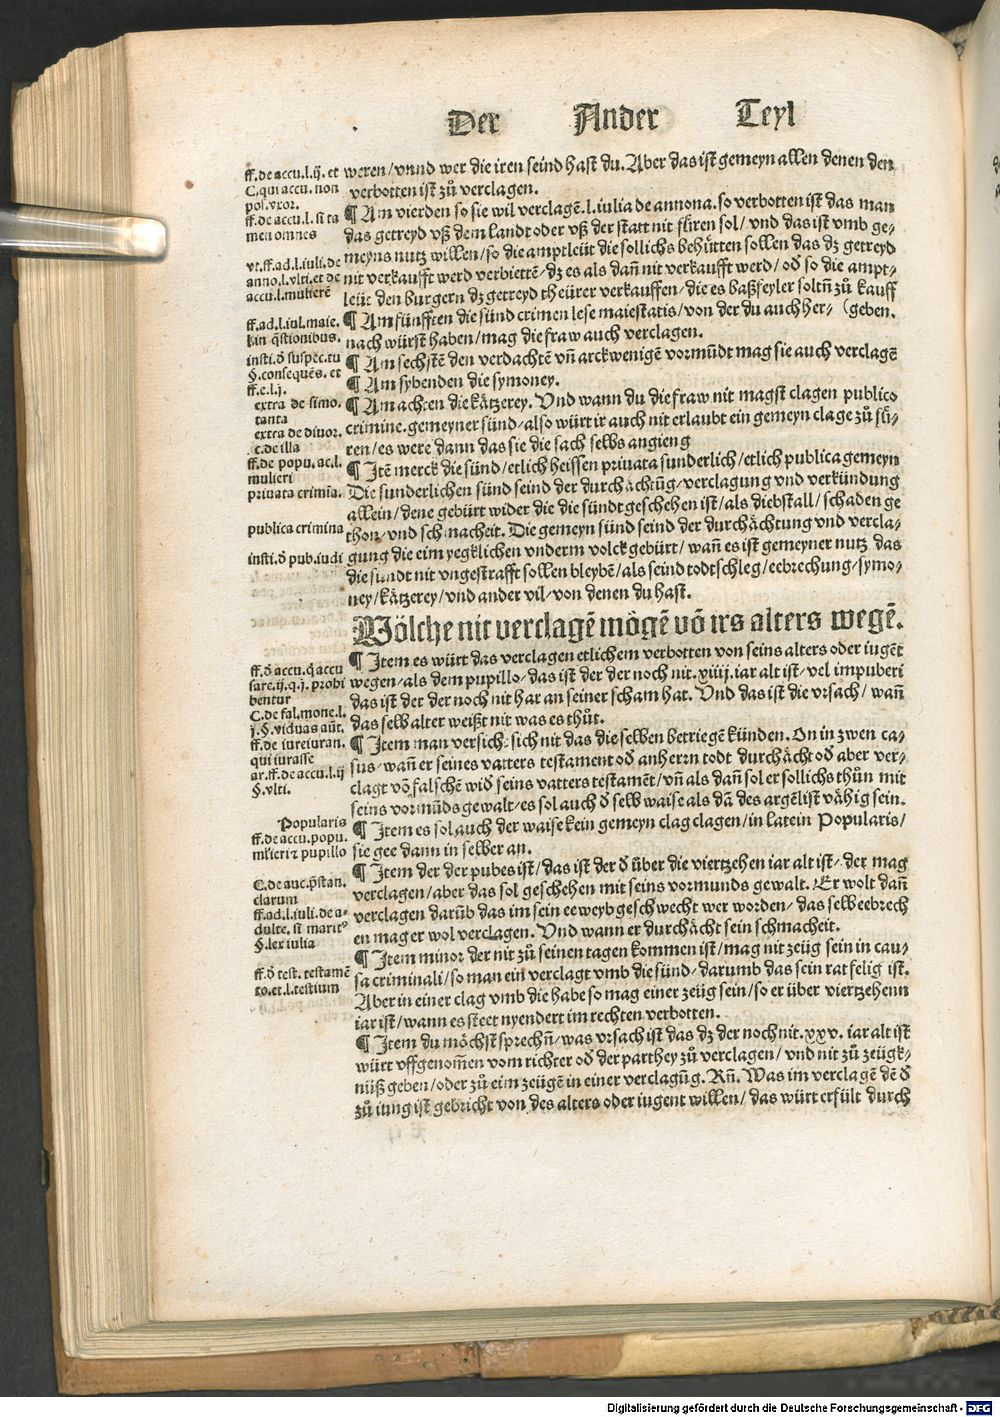 Der Ander Teyl
ff. de accu. l. ij. et
C. qui accu. non
pos. vxor.
ff. de accu. l. si ta
men omnes
vt. ff. ad. l. iuli. de
anno. l. vlti. et de
accu. l. mulierē
ff. ad. l. iul. maie.
l. in q̄stionibus.
insti. ð suspec. tu
§. consequēs. et
ff. e. l. j.
extra de simo.
tanta
extra de diuor.
c. de illa
ff. de popu. ac. l.
mulieri
priuata crimia.
publica crimina
insti. ð pub. iudi
weren / vnnd wer die iren seind hast du. Aber das ist gemeyn allen denen den
verbotten ist zů verclagen.
¶ Am vierden so sie wil verclagē. l. iulia de annona. so verbotten ist das man
das getreyd vß dem landt oder vß der statt nit fůren sol / vnd das ist vmb ge⸗
meyns nutz willen / so die amptleüt die sollichs behütten sollen das dz getreyd
nit verkaufft werd verbiettē / dz es als dañ nit verkaufft werd / oð so die ampt⸗
leüt den burgern dz getreyd theürer verkauffen / die es baßfeyler soltñ zů kauff
¶ Am fünfften die sünd crimen lese maiestatis / von der du auch her⸗ (geben.
nach würst haben / mag die fraw auch verclagen.
¶ Am sechstē den verdachtē vñ arckwenigē vormündt mag sie auch verclagē
¶ Am sybenden die symoney.
¶ Am achten die kätzerey. Vnd wann du die fraw nit magst clagen publico
crimine. gemeyner sünd / also würt ir auch nit erlaubt ein gemeyn clage zů fü⸗
ren / es were dann das sie die sach selbs angieng
¶ Itē merck die sünd / etlich heissen priuata sunderlich / etlich publica gemeyn
Die sunderlichen sünd seind der durchächtūg / verclagung vnd verkündung
allein / dene gebürt wider die die sündt geschehen ist / als diebstall / schaden ge
thon / vnd schmacheit. Die gemeyn sünd seind der durchächtung vnd vercla⸗
gung die eim yegklichen vnderm volck gebürt / wañ es ist gemeyner nutz das
die sündt nit vngestrafft sollen bleybē / als seind todtschleg / eebrechung / symo⸗
ney / kätzerey / vnd ander vil / von denen du hast.
Wölche nit verclagē mögē vō irs alters wegē.
ff. ð accu. q̄ accu
sare. ij. q. j. probi
bentur
C. de fal. mone. l.
j. §. viduas aūt.
ff. de iureiuran.
qui iurasse
ar. ff. de accu. l. ij
§. vlti.
Popularis
ff. de accu. popu.
mlieri⁊ pupillo
C. de auc. p̄stan.
clarum
ff. ad. l. iuli. de a⸗
dulte. si marit⁹
§. lex iulia
ff. ð test. testamē
to. et. l. testium
¶ Item es würt das verclagen etlichem verbotten von seins alters oder iugēt
wegen / als dem pupillo / das ist der der noch nit. xiiij. iar alt ist / vel impuberi
das ist der der noch nit har an seiner scham hat. Vnd das ist die vrsach / wañ
das selb alter weißt nit was es thůt.
¶ Item man versich. sich nit das die selben betriegē künden. On in zwen ca⸗
sus / wañ er seines vatters testament oð anherrn todt durchächt oð aber ver⸗
clagt vō falschē wið seins vatters testamēt / vñ als dañ sol er sollichs thůn mit
seins vormūds gewalt / es sol auch ð selb waise als dā des argēlist vähig sein.
¶ Item es sol auch der waise kein gemeyn clag clagen / in latein Popularis /
sie gee dann in selber an.
¶ Item der der pubes ist / das ist der ð über die viertzehen iar alt ist / der mag
verclagen / aber das sol geschehen mit seins vormunds gewalt. Er wolt dañ
verclagen darūb das im sein eeweyb geschwecht wer worden / das selb eebrech
en mag er wol verclagen. Vnd wann er durchächt sein schmacheit.
¶ Item minor der nit zů seinen tagen kommen ist / mag nit zeüg sein in cau⸗
sa criminali / so man ein verclagt vmb die sünd / darumb das sein rat felig ist.
Aber in einer clag vmb die habe so mag einer zeüg sein / so er über viertzehenn
iar ist / wann es steet nyendert im rechten verbotten.
¶ Item du möchst sprechñ / was vrsach ist das dz der noch nit. xxv. iar alt ist
würt vffgenom̄en vom richter oð der parthey zů verclagen / vnd nit zů zeügk⸗
nüß geben / oder zů eim zeügē in einer verclagūg. Rñ. Was im verclagē dē ð
zů iung ist gebricht von des alters oder iugent willen / das würt erfült durch
Digitalisierung gefördert durch die Deutsche Forschungsgemeinschaft - DFG